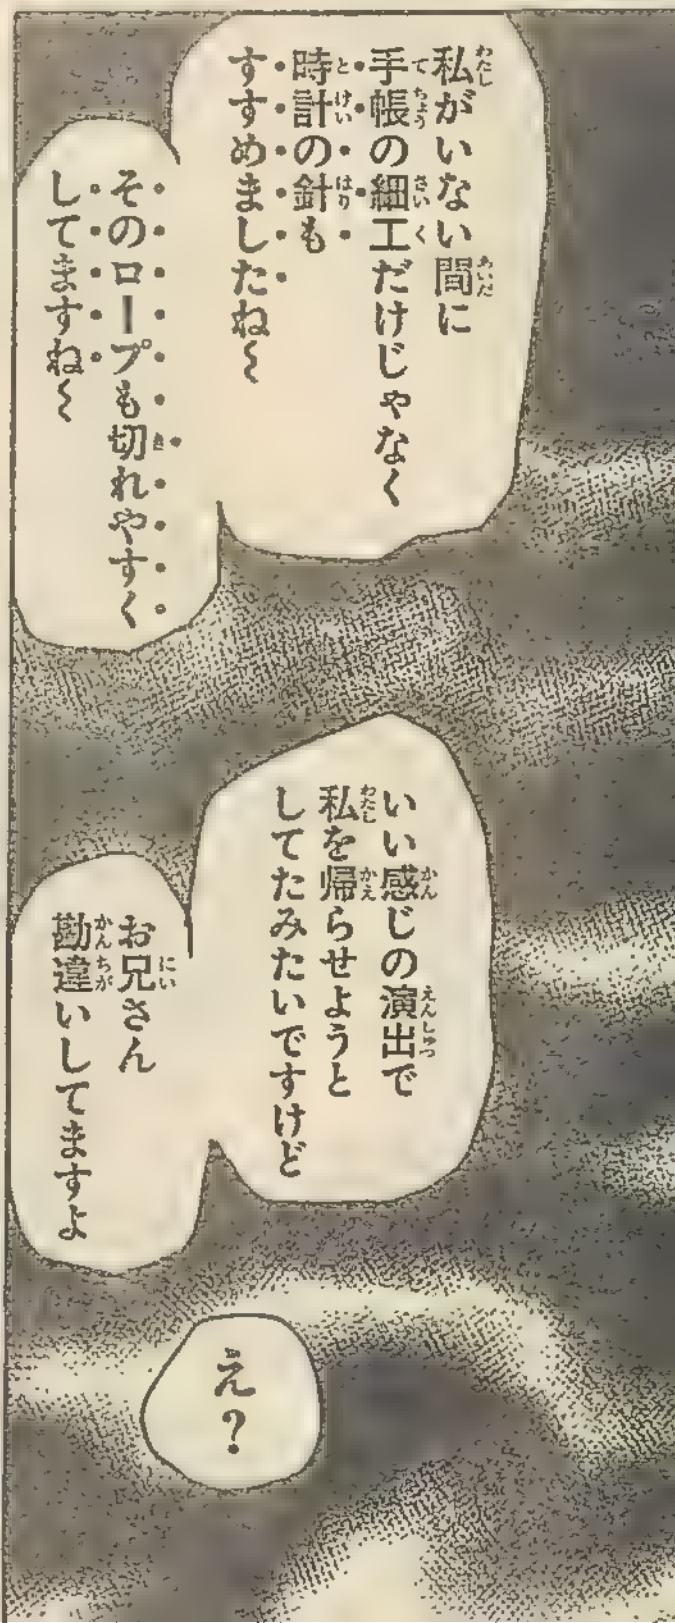 私がいない間に
手帳の細工だけじゃなく
時計の針も
すすめましたね〜
そのロープも切れやすく
してますね〜
いい感じの演出で
私を帰らせようと
してたみたいですけど
お兄さん
勘違いしてますよ
え?